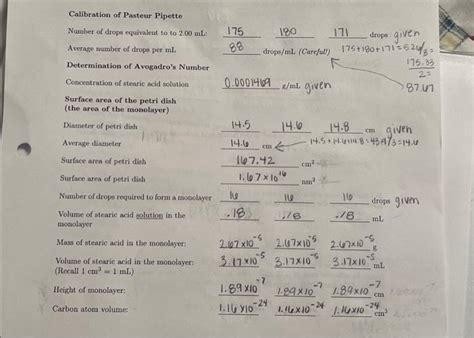 Calibration of Pasteur Pipette
Number of drops equivalent to to 2.00 mL: 175 180 171 drops given
Average number of drops per mL 88 drops/mL (Careful!) 175+180+171=526/3=
175.33
Determination of Avogadro's Number 2=
Concentration of stearic acid solution 0.0001469 g/mL given 87.67
Surface area of the petri dish
(the area of the monolayer)
Diameter of petri dish 14.5 14.6 14.8 cm given
Average diameter 14.6 cm 14.5+14.6+14.8=43.9/3=14.6
Surface area of petri dish 167.42 cm²
Surface area of petri dish 1.67x10¹⁶ nm²
Number of drops required to form a monolayer 16 16 16 drops given
Volume of stearic acid solution in the .18 .18 .18 mL
monolayer
Mass of stearic acid in the monolayer: 2.67x10⁻⁵ 2.67x10⁻⁵ 2.67x10⁻⁵ g
Volume of stearic acid in the monolayer: 3.17x10⁻⁵ 3.17x10⁻⁵ 3.17x10⁻⁵ mL
(Recall 1 cm³ = 1 mL)
Height of monolayer: 1.89x10⁻⁷ 1.89x10⁻⁷ 1.89x10⁻⁷ cm
Carbon atom volume: 1.16x10⁻²⁴ 1.16x10⁻²⁴ 1.16x10⁻²⁴ cm³